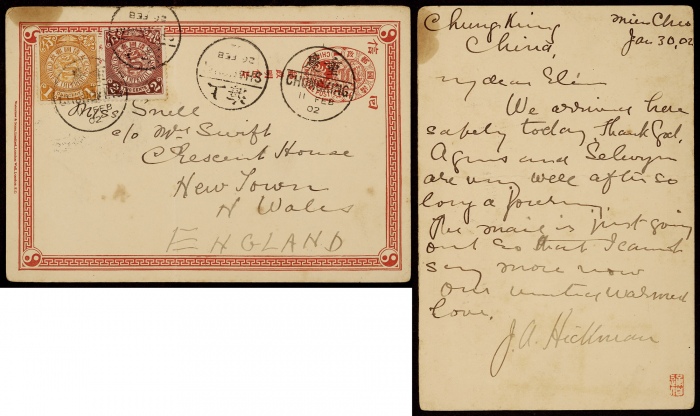 Miss Snell
c/o Mrs Swift
Crescent House
New Town
N Wales
ENGLAND
CHUNGKING
11 FEB
02
26 FEB
Chung King
Mien Cheo
China,
Jan 30, 02
My dear Elsie
We arrived here
safely today Thank God,
Agnes and Selwyn
are very well after so
long a journey
The mail is just going
out so that I cannot
say more now
Our united warmest
love.
J. A. Hickman